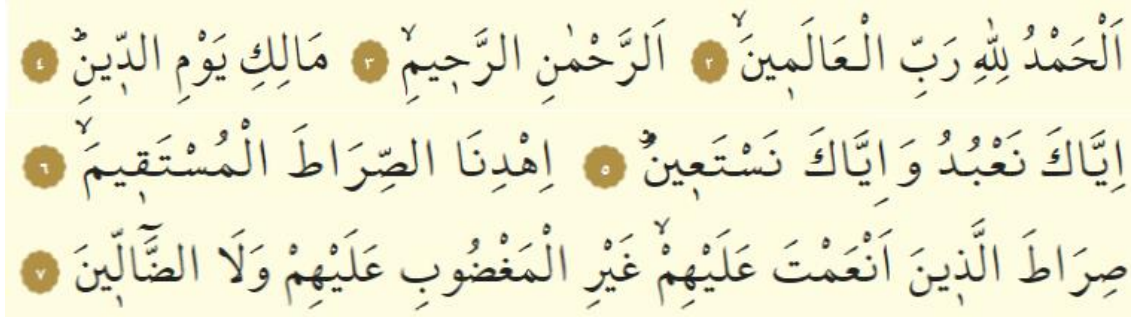 اَلْحَمْدُ لِلّٰهِ رَبِّ الْعَالَم۪ينَۙ ٢ اَلرَّحْمٰنِ الرَّح۪يمِۙ ٣ مَالِكِ يَوْمِ الدّ۪ينِۜ ٤
اِيَّاكَ نَعْبُدُ وَاِيَّاكَ نَسْتَع۪ينُۜ ٥ اِهْدِنَا الصِّرَاطَ الْمُسْتَق۪يمَۙ ٦
صِرَاطَ الَّذ۪ينَ اَنْعَمْتَ عَلَيْهِمْۙ غَيْرِ الْمَغْضُوبِ عَلَيْهِمْ وَلَا الضَّٓالّ۪ينَ ٧